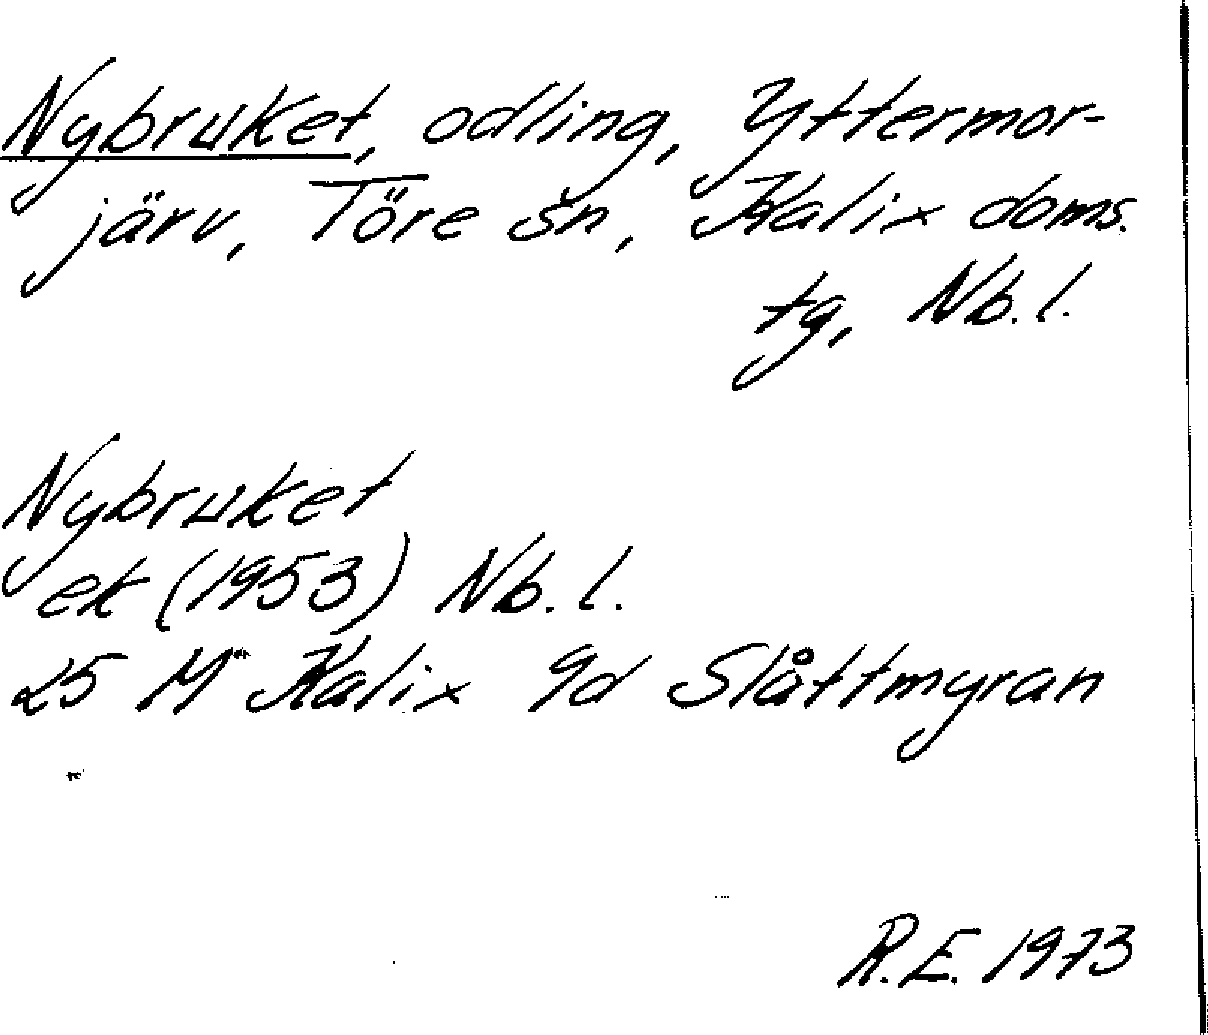 Nybruket, odling, Yttermor-
järv, Töre sn, Kalix doms.
tg, Nb.l.
Nybruket
ek (1953) Nb.l.
25 M Kalix 9d Slåttmyran
R.E. 1973